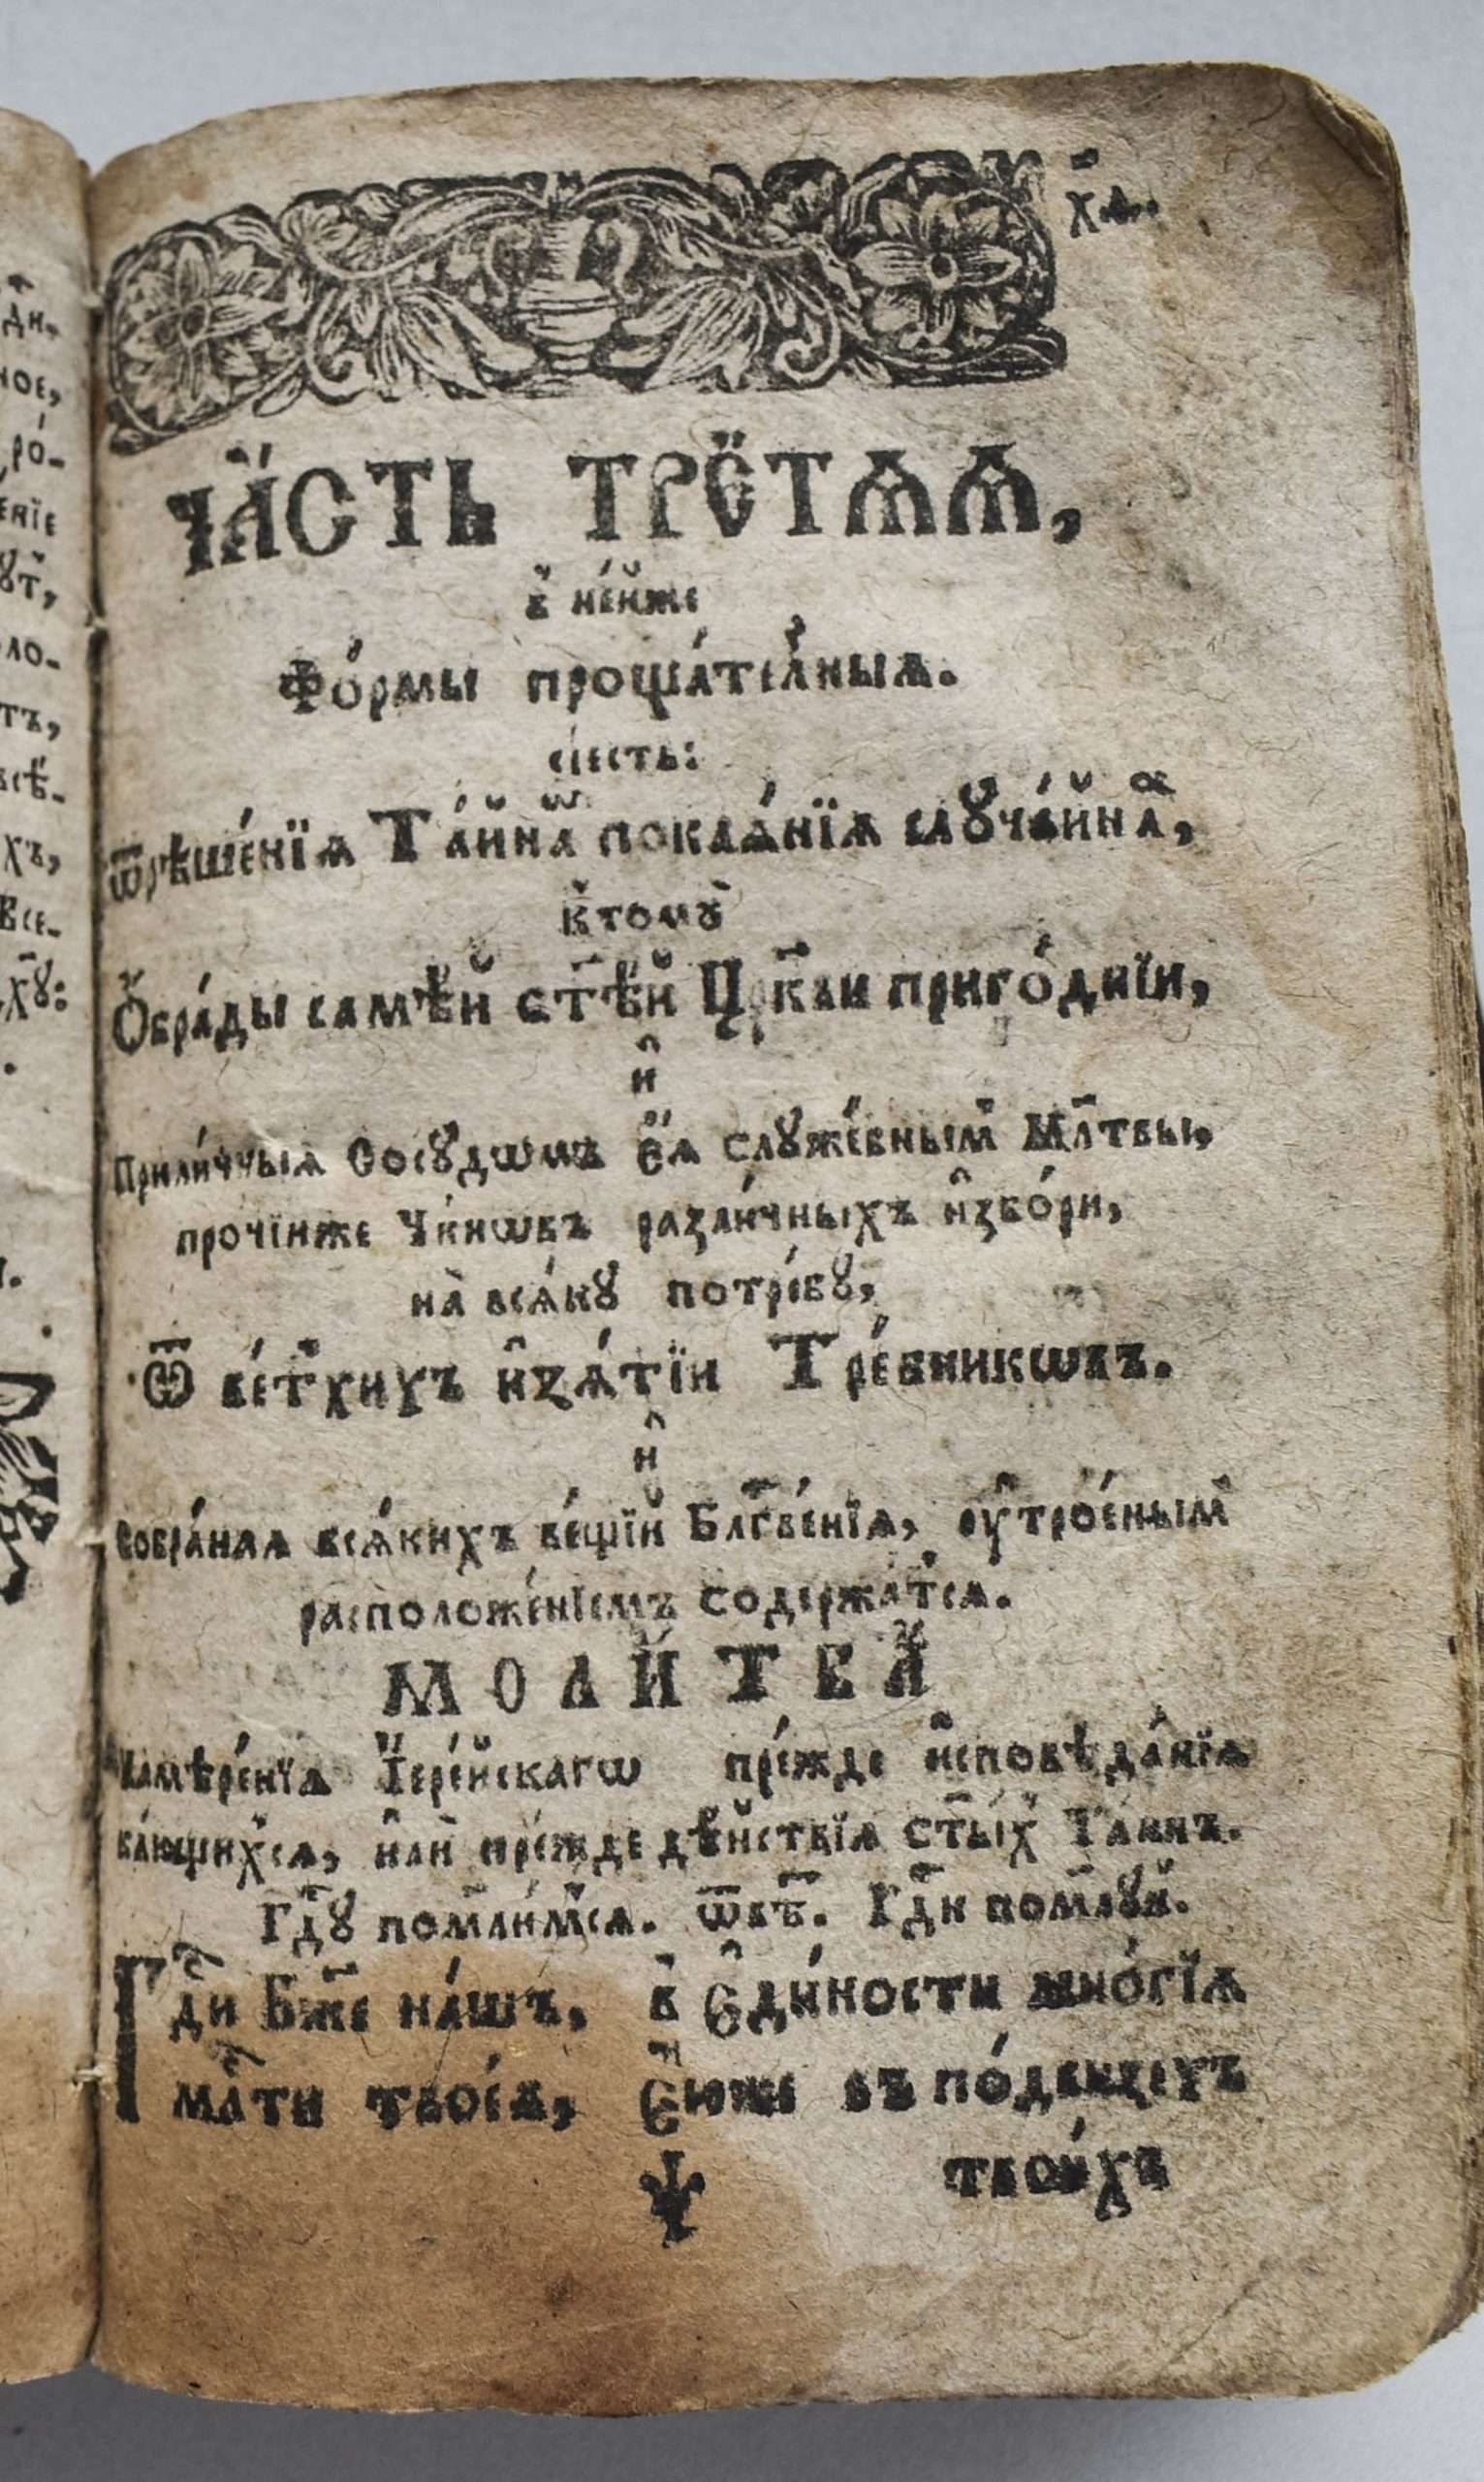 ха.
ЧА́СТЬ ТРЕ́ТАѦ,
в̾ не́йже
Фо́рмы проща́телныѧ.
сіесть:
ѿрѣше́нїѧ Та́йна покаѧ́нїѧ слꙋча́йна,
к̾томꙋ̀
Обра́ды самѣ́й ст҃ѣ́й Цр҃кви приго́днїи,
и҆
Прили́чныѧ Сосꙋдѡмъ є҆ѧ̀ слꙋже́бным Мл҃твы,
прочїиже Чи́нѡвъ разли́чныхъ и҆збо́ри,
на всѧ́кꙋ потре́бꙋ,
Ѿ ве́тхихъ и҆зѧ́тїи Тре́бникѡвъ.
и҆
собра́наѧ всѧ́кихъ ве́щїй Блгⷭ҇ве́нїѧ, ᲂу҆трое́ным
расположе́нїемъ содержатсѧ.
МОЛИ́ТВА̀
Намѣре́нїѧ І҆ере́йскагѡ пре́жде и҆сповѣда́нїѧ
ка́ющихсѧ, и҆лѝ пре́жде дѣ́йствїѧ ст҃ы́х Таинъ.
Гдⷭ҇ꙋ пом҃ли́мсѧ. ѿвѣ҃. Гдⷭ҇и пом҃лꙋй.
Гдⷭ҇и Бж҃е на́шъ, в̾ є҆ди́ности мно́гїѧ
мл҃ти твоеѧ́, є҆юже въ по́двизехъ
твои́хъ